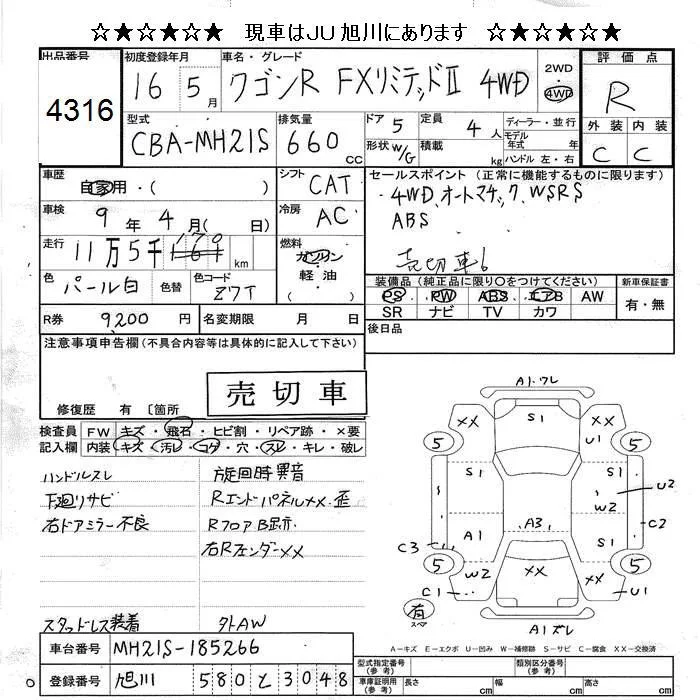 ☆★☆★☆★☆ 現車はJU 旭川にあります ☆★☆★☆★☆
出品番号 初度登録年月 車名・グレード 評価点
4316 16 5月 ワゴンR FXリミテッドⅡ 4WD 2WD 4WD R
型式 排気量 ドア 5 定員 4人 ディーラー・並行 外装 内装
CBA-MH21S 660cc 形状 W/G 積載 kg モデル年式 年式 ハンドル 左・右 C C
車歴 自家用・( ) シフト CAT セールスポイント (正常に機能するものに限ります)
車検 9年 4月( 日) 冷房 AC 4WD、オートマチック、WSRS
ABS
走行 11万5千 km 燃料 ガソリン・軽油 ( ) 売切車
色 パール白 色替 色コード Z7T 装備品 (純正品に限り○をつけてください) 新車保証書
PS PW ABS エアB AW 有・無
SR ナビ TV カワ
R券 9,200円 名変期限 月 日 後日品
注意事項申告欄 (不具合内容等は具体的に記入して下さい)
売切車
修復歴 有 〔箇所
検査員 FW キズ・飛石・ヒビ割・リペア跡・×要
記入欄 内装 キズ・汚レ・コゲ・穴・スレ・キレ・破レ
ハンドルスレ 旋回時異音
下廻リサビ Rエンドパネル××.歪
右ドアミラー不良 RフロアB歪
右Rフェンダー××
スタッドレス装着 外AW
A1.ワレ
×× S1 ××
5 U1 5
S1 S1
U2
W2
A1 A3 C2
S1
C3
5 W2 ×× ×× 5
C1 U1
有
スペア
A1ズレ
A-キズ E-エクボ U-凹み W-補修跡 S-サビ C-腐食 XX-交換済
車台番号 MH21S-185266 型式指定番号(参考) 類別区分番号(参考)
登録番号 旭川 580 と 3048 車庫証明用(参考) 長さ cm 幅 cm 高さ cm